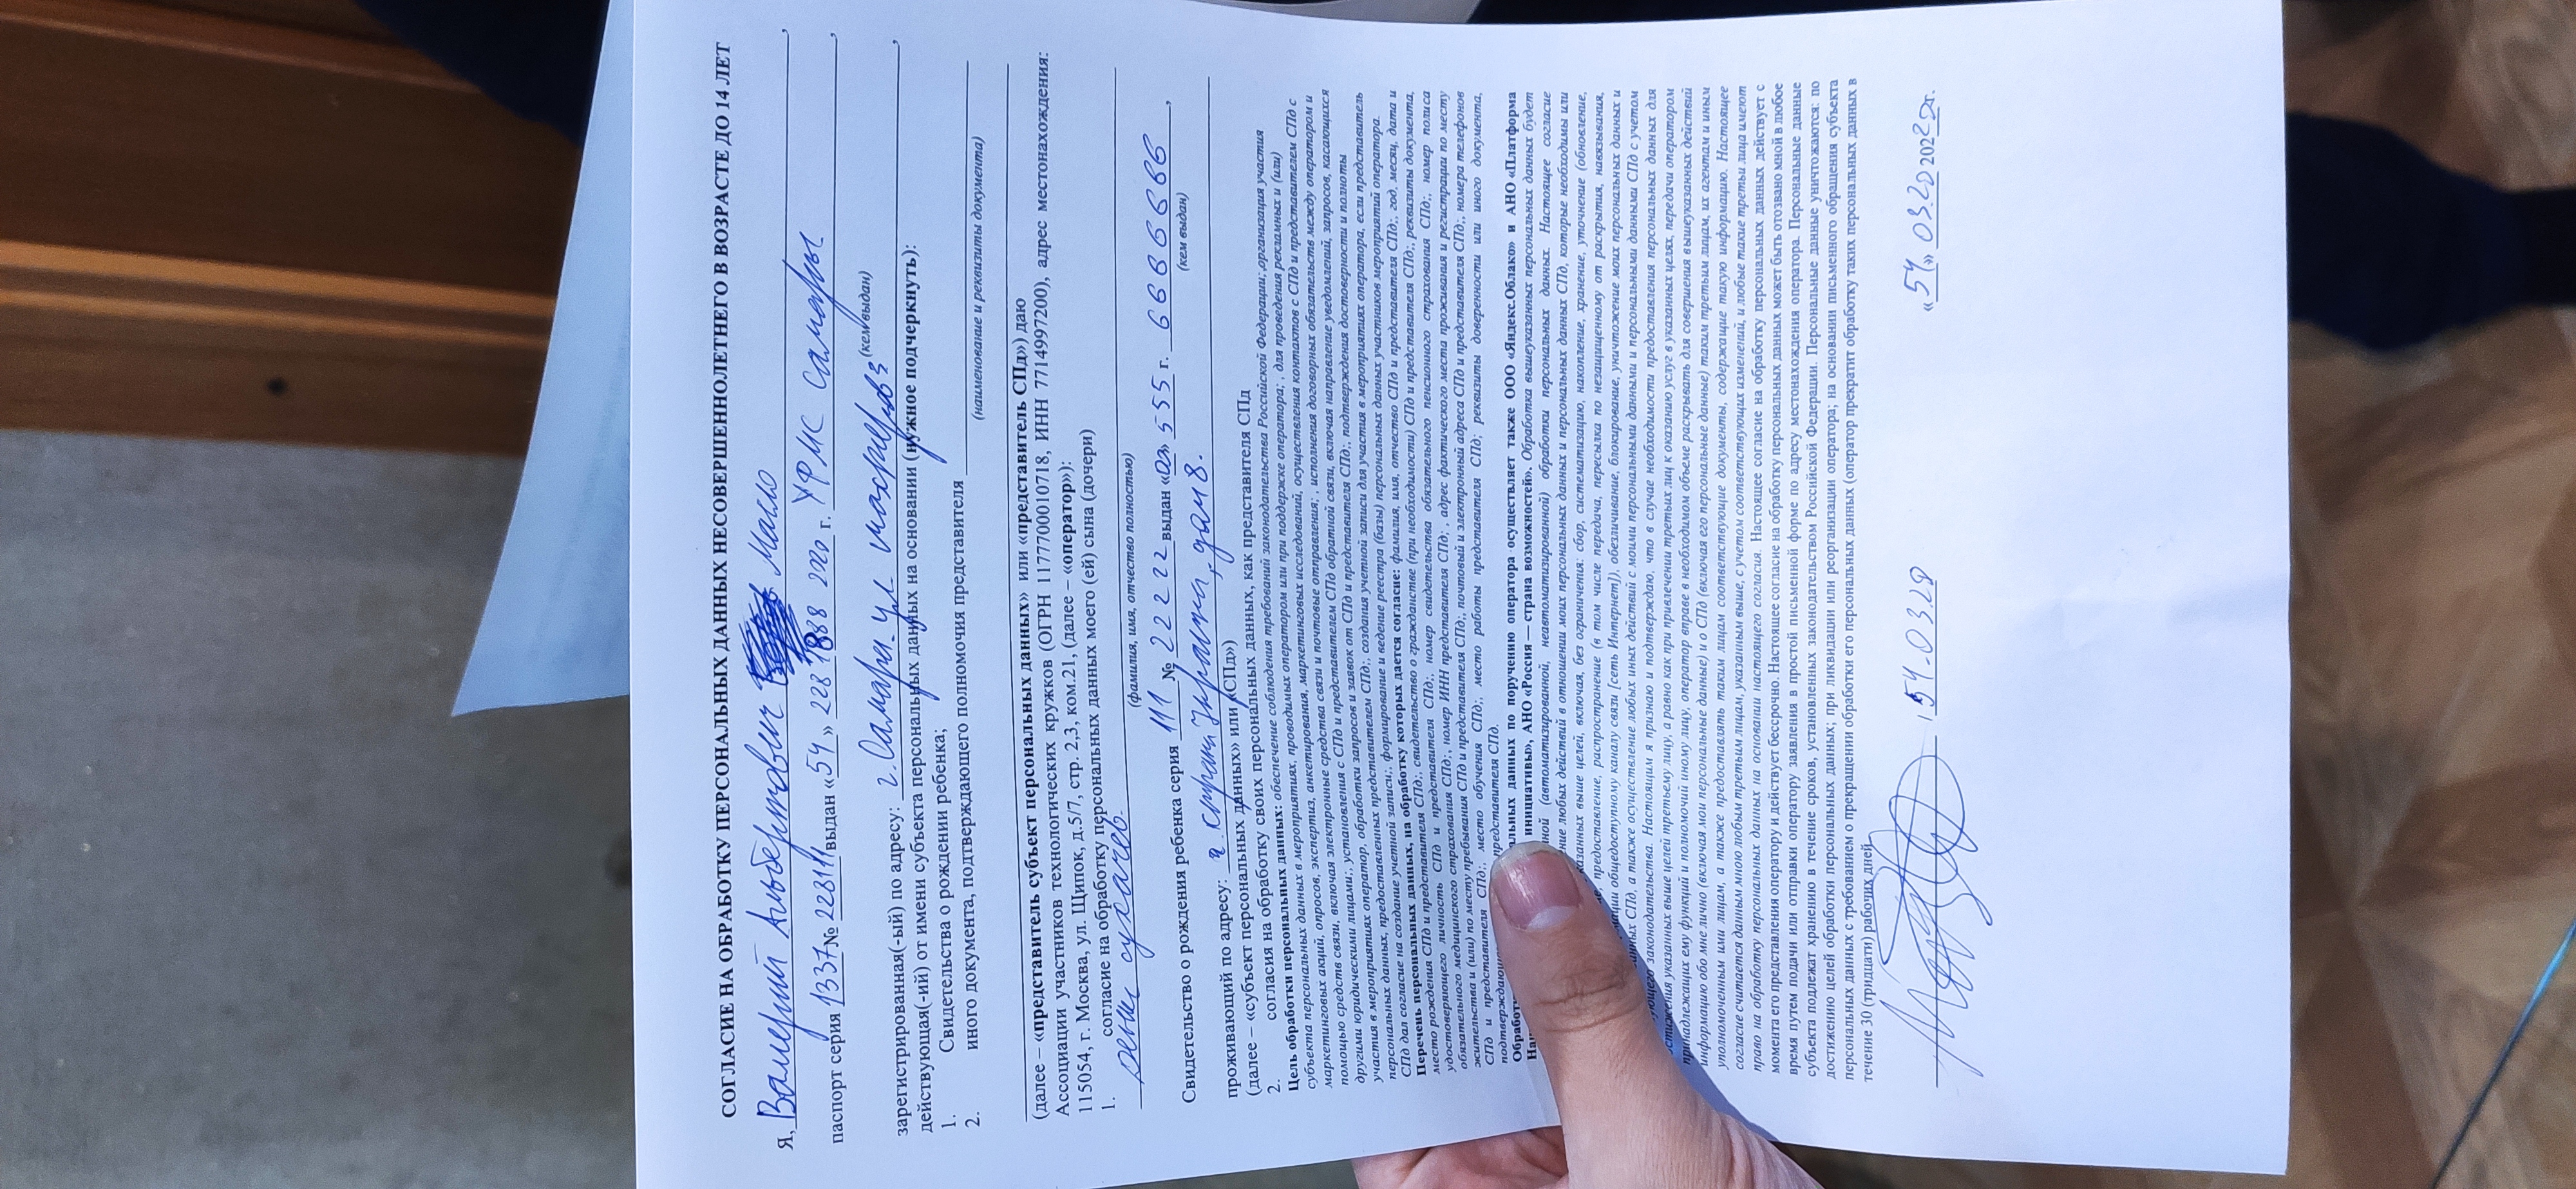 СОГЛАСИЕ НА ОБРАБОТКУ ПЕРСОНАЛЬНЫХ ДАННЫХ НЕСОВЕРШЕННОЛЕТНЕГО В ВОЗРАСТЕ ДО 14 ЛЕТ
Я, Валерий Альбертович Масло,
паспорт серия 1337 № 228111 выдан «54» 228 1888 2020 г. УФМС Самары,
(кем выдан)
зарегистрированная(-ый) по адресу: г. Самара. ул.
действующая(-ий) от имени субъекта персональных данных на основании (нужное подчеркнуть):
1. Свидетельства о рождении ребенка;
2. иного документа, подтверждающего полномочия представителя
(наименование и реквизиты документа)
(далее – «представитель субъект персональных данных» или «представитель СПд») даю
Ассоциации участников технологических кружков (ОГРН 1177700010718, ИНН 7714997200), адрес местонахождения:
115054, г. Москва, ул. Щипок, д.5/7, стр. 2,3, ком.21, (далее – «оператор»):
1. согласие на обработку персональных данных моего (ей) сына (дочери)
сухачев.
(фамилия, имя, отчество полностью)
Свидетельство о рождения ребенка серия 111 № 22222 выдан 555 г. 6666666,
(кем выдан)
проживающий по адресу: г. страна Украина, дом 8.
(далее – «субъект персональных данных» или «СПд»)
2. согласия на обработку своих персональных данных, как представителя СПд
Цель обработки персональных данных: обеспечение соблюдения требований законодательства Российской Федерации; ,организация участия
субъекта персональных данных в мероприятиях, проводимых оператором или при поддержке оператора; , для проведения рекламных и (или)
маркетинговых акций, опросов, экспертиз, анкетирования, маркетинговых исследований, осуществления контактов с СПд и представителем СПд с
помощью средств связи, включая электронные средства связи и почтовые отправления; , исполнения договорных обязательств между оператором и
другими юридическими лицами;, установления с СПд и представителем СПд обратной связи, включая направление уведомлений, запросов, касающихся
участия в мероприятиях оператор, обработки запросов и заявок от СПд и представителя СПд;, подтверждения достоверности и полноты
персональных данных, предоставленных представителем СПд;, создания учетной записи для участия в мероприятиях оператора, если представитель
СПд дал согласие на создание учетной записи;, формирование и ведение реестра (базы) персональных данных участников мероприятий оператора.
Перечень персональных данных, на обработку которых дается согласие: фамилия, имя, отчество СПд и представителя СПд;, год, месяц, дата и
место рождения СПд и представителя СПд;, свидетельство о гражданстве (при необходимости) СПд и представителя СПд;, реквизиты документа,
удостоверяющего личность СПд и представителя СПд;, номер свидетельства обязательного пенсионного страхования СПд;, номер полиса
обязательного медицинского страхования СПд;, номер ИНН представителя СПд; , адрес фактического места проживания и регистрации по месту
жительства и (или) по месту пребывания СПд и представителя СПд;, почтовый и электронный адреса СПд и представителя СПд;, номера телефонов
СПд и представителя СПд;, место обучения СПд;, место работы представителя СПд; реквизиты доверенности или иного документа,
представителя СПд.
данных по поручению оператора осуществляет также ООО «Яндекс.Облако» и АНО «Платформа
инициативы», АНО «Россия — страна возможностей». Обработка вышеуказанных персональных данных будет
(автоматизированной, неавтоматизированной) обработки персональных данных. Настоящее согласие
любых действий в отношении моих персональных данных и персональных данных СПд, которые необходимы или
выше целей, включая, без ограничения: сбор, систематизацию, накопление, хранение, уточнение (обновление,
предоставление, распространение (в том числе передача, пересылка по незащищенному от раскрытия, навязывания,
общедоступному каналу связи [сеть Интернет]), обезличивание, блокирование, уничтожение моих персональных данных и
СПд, а также осуществление любых иных действий с моими персональными данными и персональными данными СПд с учетом
законодательства. Настоящим я признаю и подтверждаю, что в случае необходимости предоставления персональных данных для
достижения указанных выше целей третьему лицу, а равно как при привлечении третьих лиц к оказанию услуг в указанных целях, передачи оператором
принадлежащих ему функций и полномочий иному лицу, оператор вправе в необходимом объеме раскрывать для совершения вышеуказанных действий
информацию обо мне лично (включая мои персональные данные) и о СПд (включая его персональные данные) таким третьим лицам, их агентам и иным
уполномоченным ими лицам, а также предоставлять таким лицам соответствующие документы, содержащие такую информацию. Настоящее
согласие считается данным мною любым третьим лицам, указанным выше, с учетом соответствующих изменений, и любые такие третьи лица имеют
право на обработку персональных данных на основании настоящего согласия. Настоящее согласие на обработку персональных данных действует с
момента его представления оператору и действует бессрочно. Настоящее согласие на обработку персональных данных может быть отозвано мной в любое
время путем подачи или отправки оператору заявления в простой письменной форме по адресу местонахождения оператора. Персональные данные
субъекта подлежат хранению в течение сроков, установленных законодательством Российской Федерации. Персональные данные уничтожаются: по
достижению целей обработки персональных данных; при ликвидации или реорганизации оператора; на основании письменного обращения субъекта
персональных данных с требованием о прекращении обработки его персональных данных (оператор прекратит обработку таких персональных данных в
течение 30 (тридцати) рабочих дней.
/ 54.03.20 «54» 03.20 2022г.